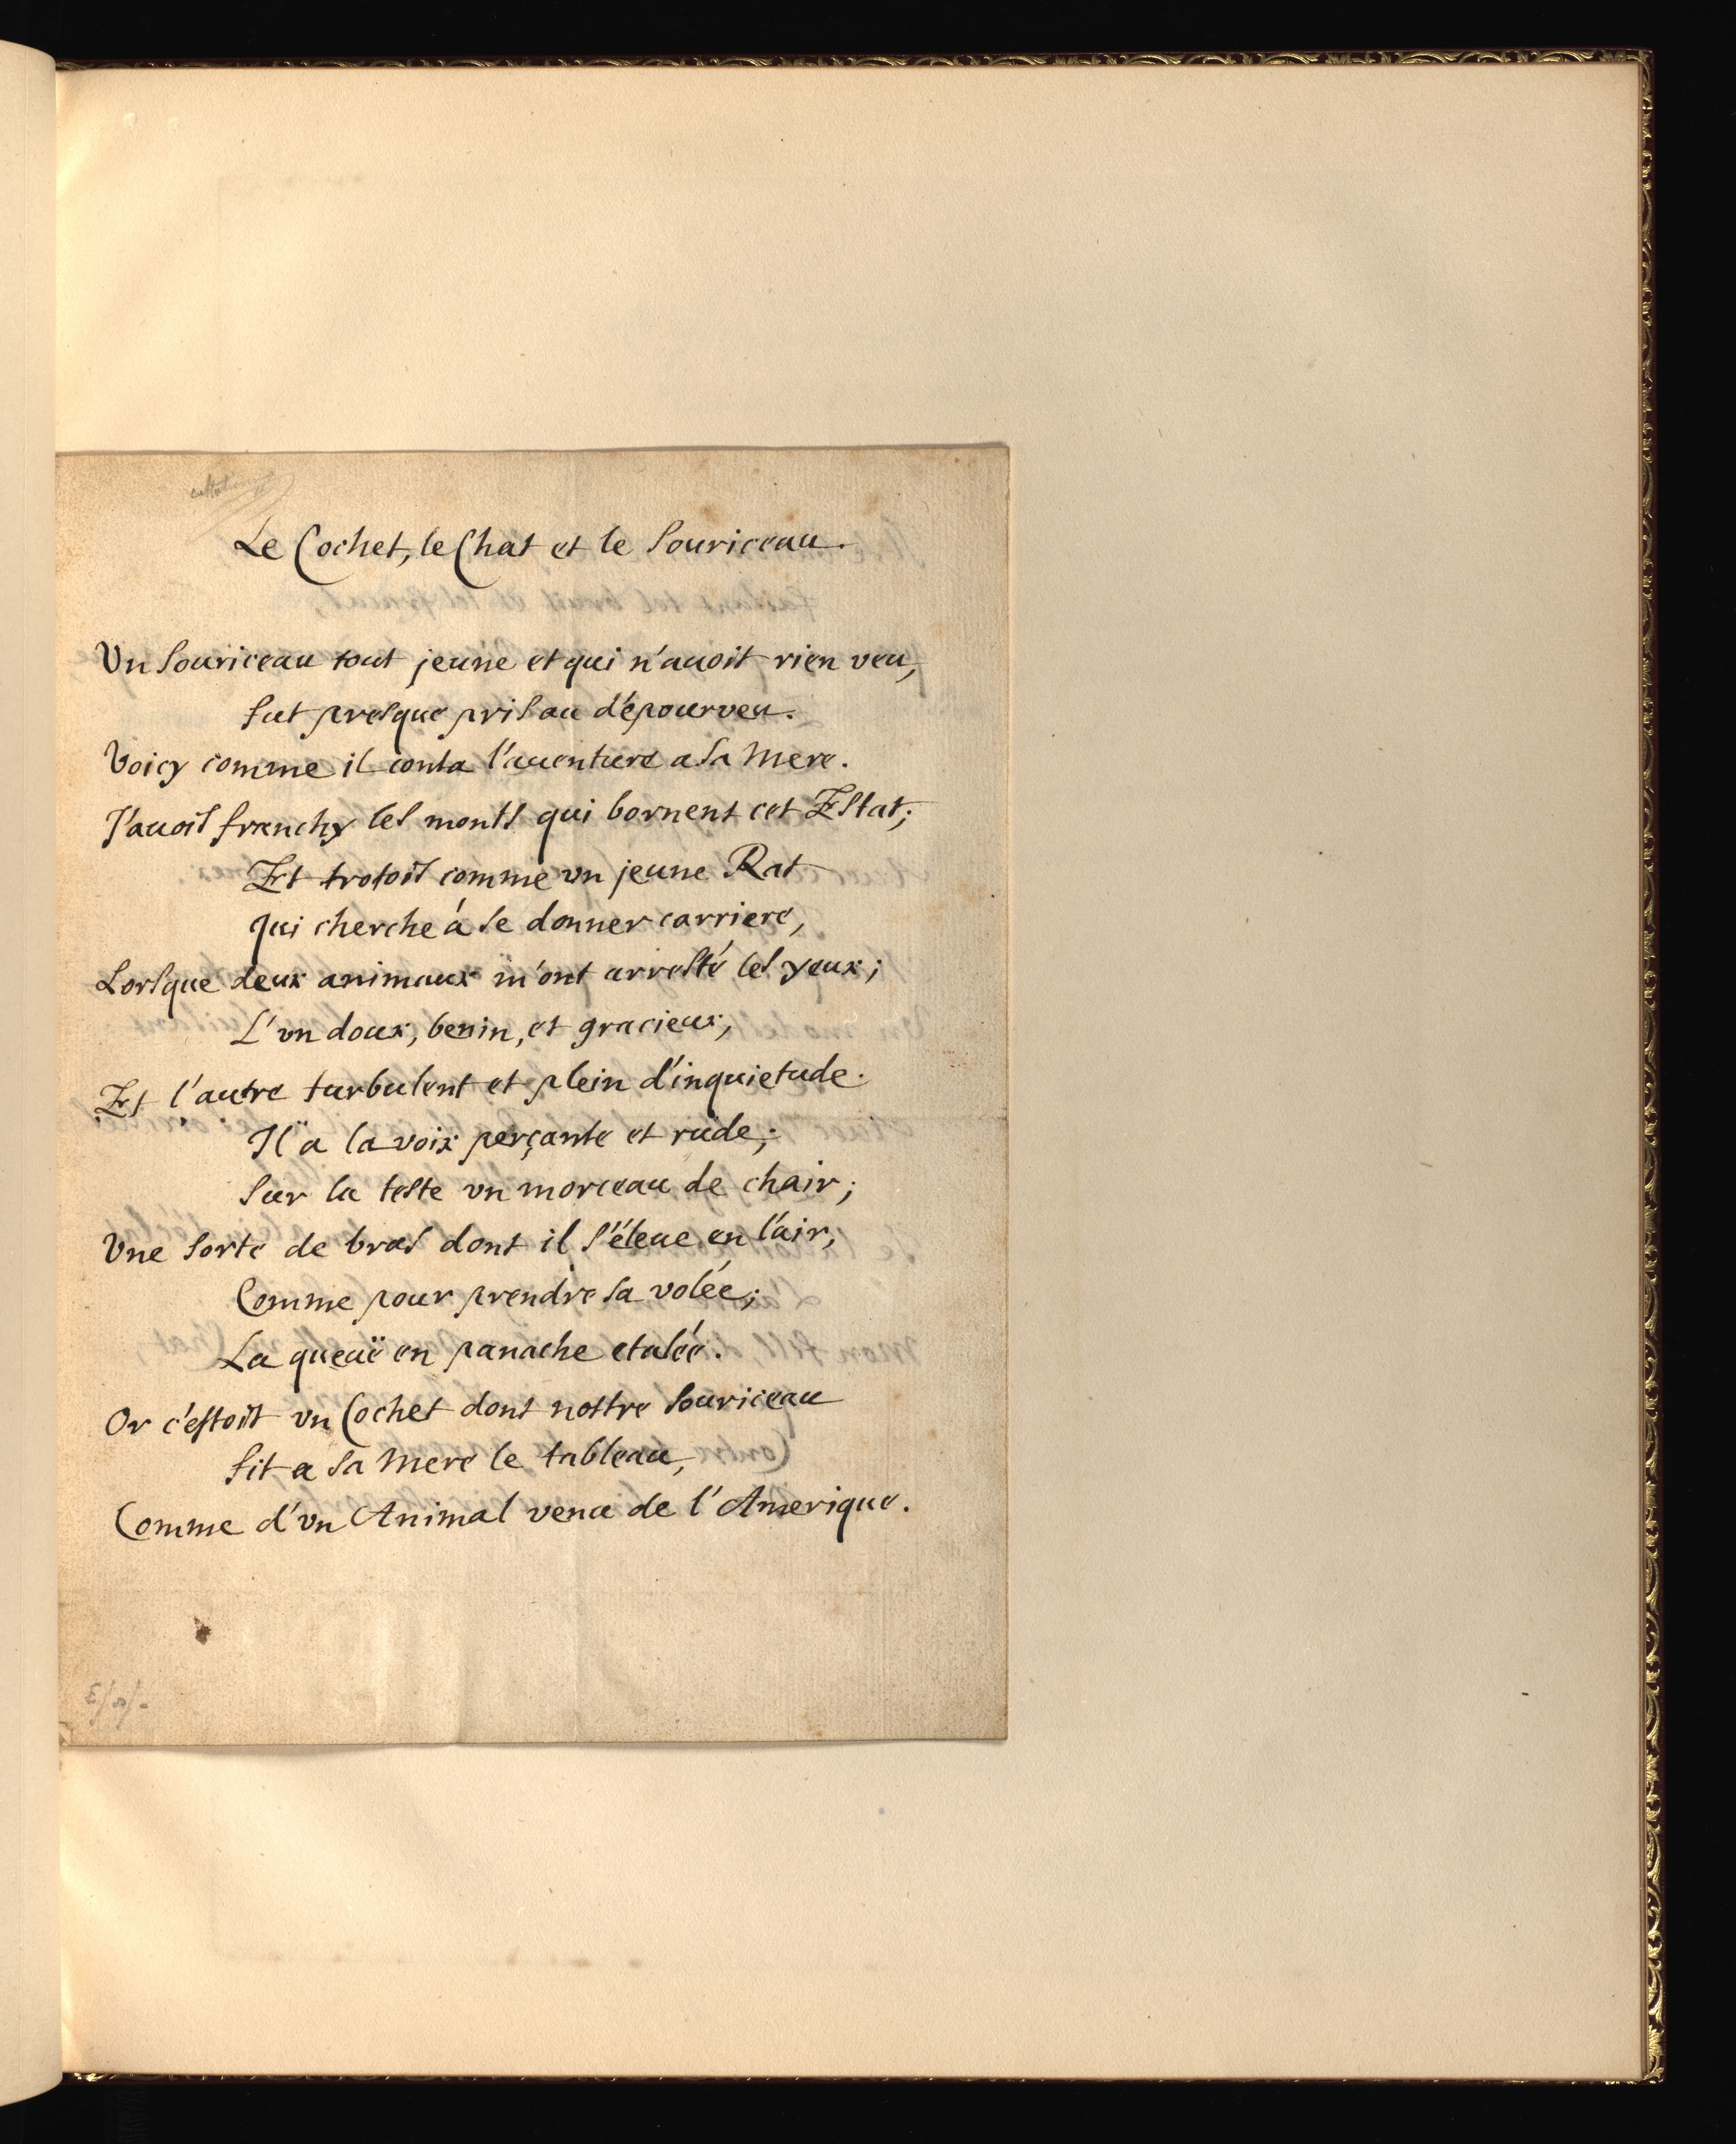 Le Cochet, le Chat et le Souriceau.
Vn Souriceau tout jeune et qui n'auoit rien veu,
fut presque pris au dépourveu.
Voicy comme il conta l'auenture a sa Mere.
J'auois franchy les monts qui bornent cet Estat;
Et trotois comme vn jeune Rat
qui cherche á se donner carriere,
Lorsque deux animaux m'ont arresté les yeux;
L'vn doux, benin, et gracieux,
Et l'autre turbulent et plein d'inquietude.
Il a la voix perçante et rude;
Sur la teste vn morceau de chair;
Vne sorte de bras dont il s'éleue en l'air,
Comme pour prendre sa volée;
La queuë en panache etalée.
Or c'estoit vn Cochet dont nostre Souriceau
fit a sa Mere le tableau,
Comme d'vn Animal venu de l'Amerique.